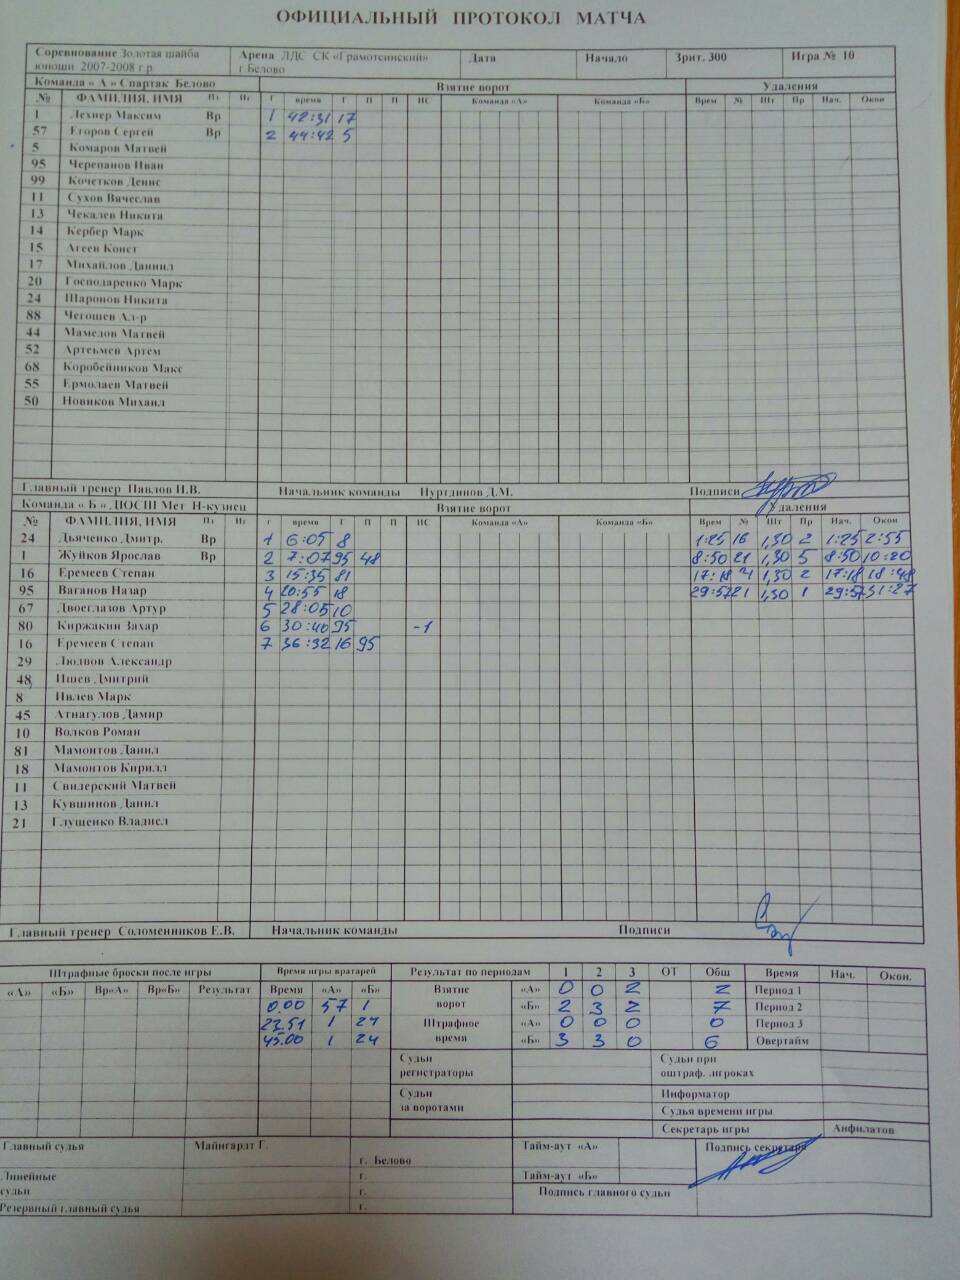 ОФИЦИАЛЬНЫЙ ПРОТОКОЛ МАТЧА
Соревнование Золотая шайба юноши 2007-2008 г р Арена ЛДС СК «Грамотеинский» г Белово Дата Начало Зрит. 300 Игра № 10
Команда « А » Спартак Белово Взятие ворот Удаления
№ ФАМИЛИЯ, ИМЯ Пз Нг Г время Г П П ИС Команда «А» Команда «Б» Врем № Шт Пр Нач. Окон
1 Лехнер Максим Вр 1 42:31 17
57 Егоров Сергей Вр 2 44:42 5
5 Комаров Матвей
95 Черепанов Иван
99 Кочетков Денис
11 Сухов Вячеслав
13 Чекалев Никита
14 Кербер Марк
15 Агеев Конст
17 Михайлов Даниил
20 Господаренко Марк
24 Шаронов Никита
88 Чегошев Ал-р
44 Мамедов Матвей
52 Артеьмев Артем
68 Коробейников Макс
55 Ермолаев Матвей
50 Новиков Михаил
Главный тренер Павлов И.В. Начальник команды Нуртдинов Д.М. Подписи
Команда « Б » ДЮСШ Мет Н-кузнец Взятие ворот Удаления
№ ФАМИЛИЯ, ИМЯ Пз Нг г время Г П П ИС Команда «А» Команда «Б» Врем № Шт Пр Нач. Окон
24 Дьяченко Дмитр. Вр 1 6:05 8 1:25 16 1,30 2 1:25 2:55
1 Жуйков Ярослав Вр 2 7:07 95 48 8:50 21 1,30 5 8:50 10:20
16 Еремеев Степан 3 15:35 81 17:18 1,30 2 17:18 18:48
95 Ваганов Назар 4 20:55 18 29:57 21 1,30 1 29:57 31:27
67 Двоеглазов Артур 5 28:05 10
80 Киржакин Захар 6 30:40 95 -1
16 Еремеев Степан 7 36:32 16 95
29 Людвов Александр
48 Ишев Дмитрий
8 Ивлев Марк
45 Атнагулов Дамир
10 Волков Роман
81 Мамонтов Данил
18 Мамонтов Кирилл
11 Свидерский Матвей
13 Кувшинов Данил
21 Глущенко Владисл
Главный тренер Соломенников Е.В. Начальник команды Подписи
Штрафные броски после игры Время игры вратарей Результат по периодам 1 2 3 ОТ Общ Время Нач. Окон.
«А» «Б» Вр«А» Вр«Б» Результат Время «А» «Б» Взятие ворот «А» 0 0 2 2 Период 1
0.00 57 1 «Б» 2 3 2 7 Период 2
23.51 1 24 Штрафное время «А» 0 0 0 0 Период 3
45.00 1 24 «Б» 3 3 0 6 Овертайм
Судьи регистраторы Судьи при оштраф. игроках
Судьи за воротами Информатор
Судья времени игры
Секретарь игры Анфилатов
Главный судья Майнгардт Г. г. Белово Тайм-аут «А» Подпись секретаря
Линейные судьи г. Тайм-аут «Б»
г. Подпись главного судьи
Резервный главный судья г.